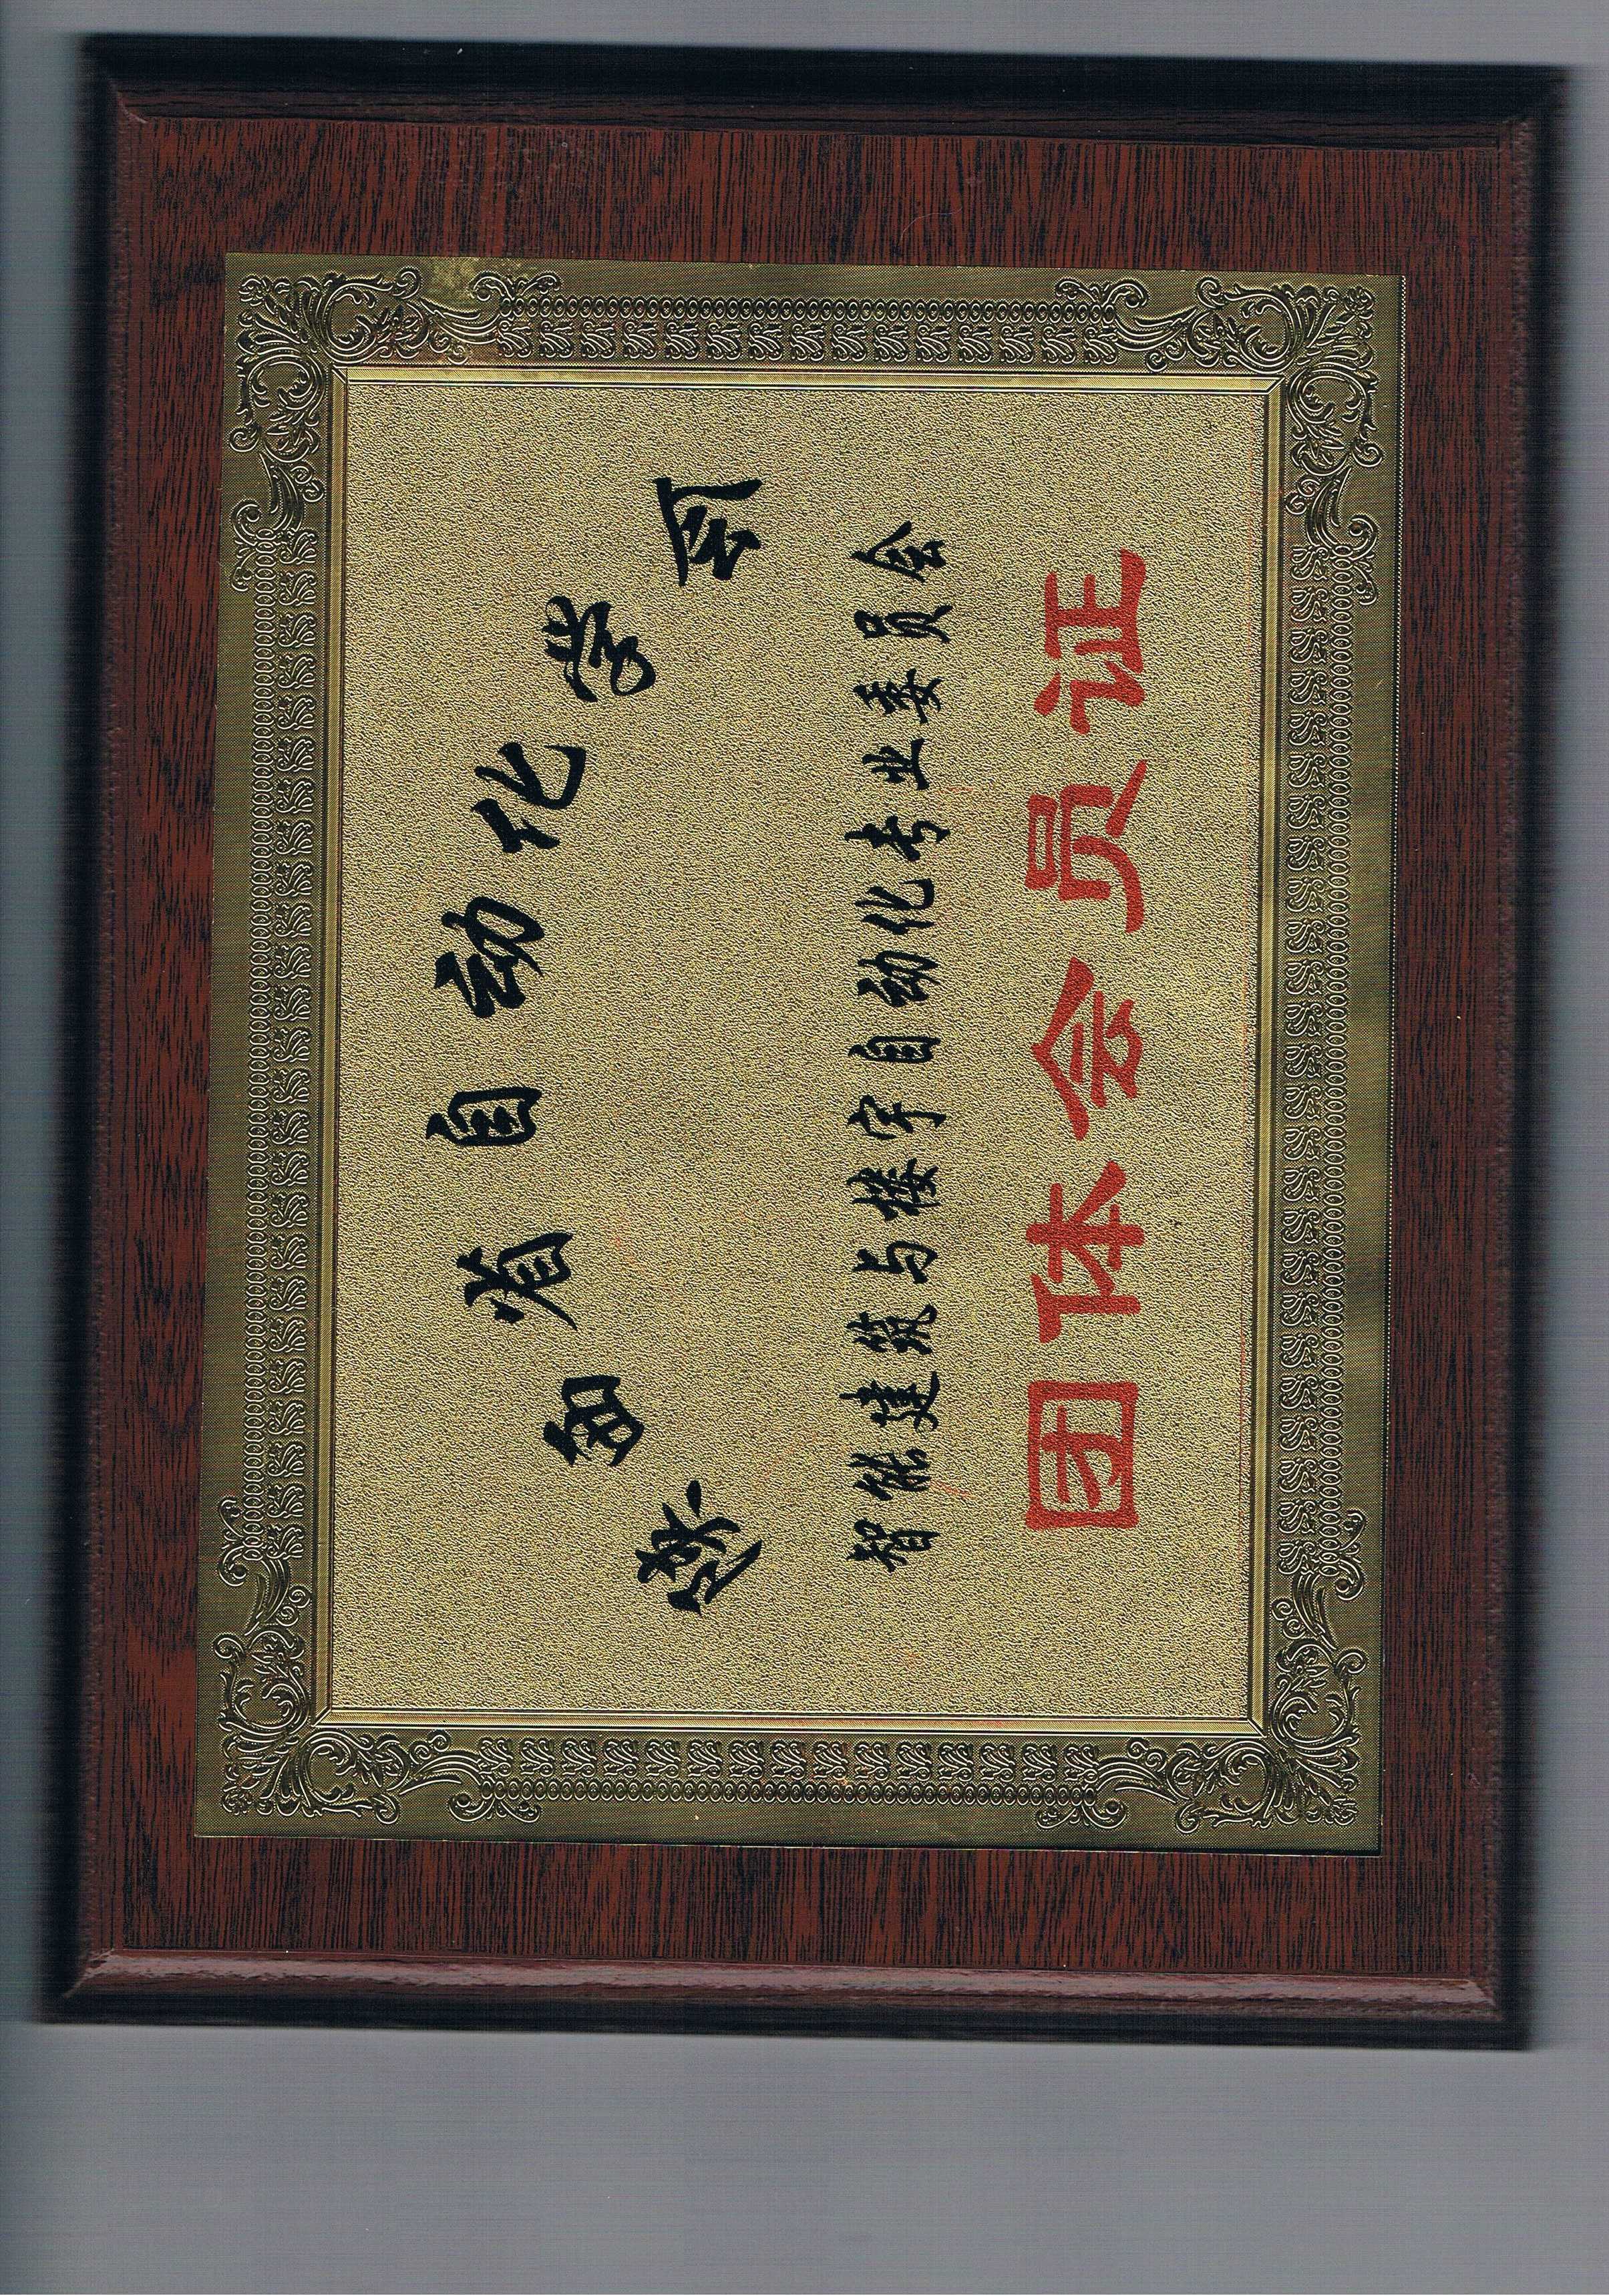 陕西省自动化学会
智能建筑与楼宇自动化专业委员会
团体会员证